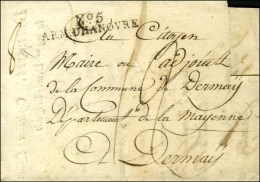 Nº 5
ARM. D'HANOVRE
8
Au Citoyen
Maire ou adjoint
de la Commune de Dermaÿ
Département de la Mayenne
A Dermaÿ